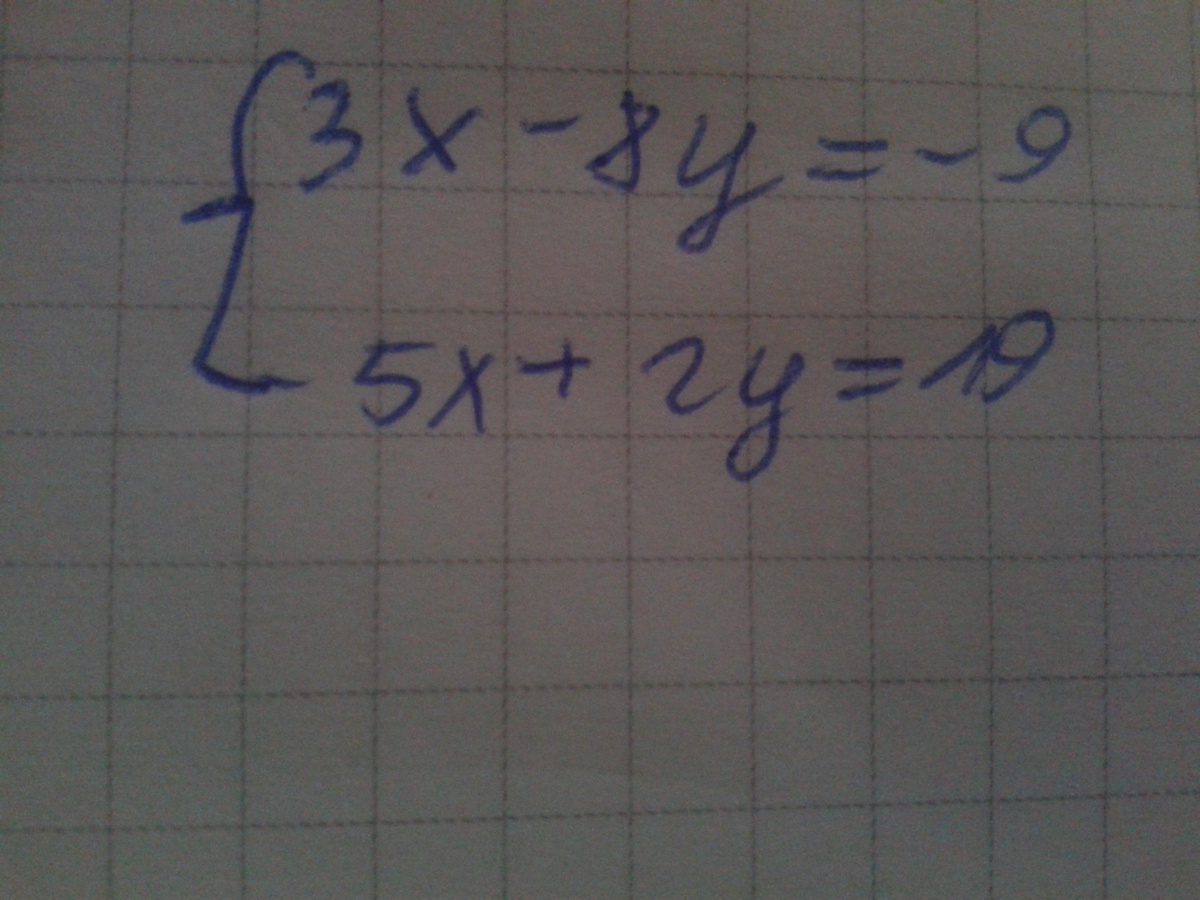 3x - 8y = - 9
5x + 2y = 19